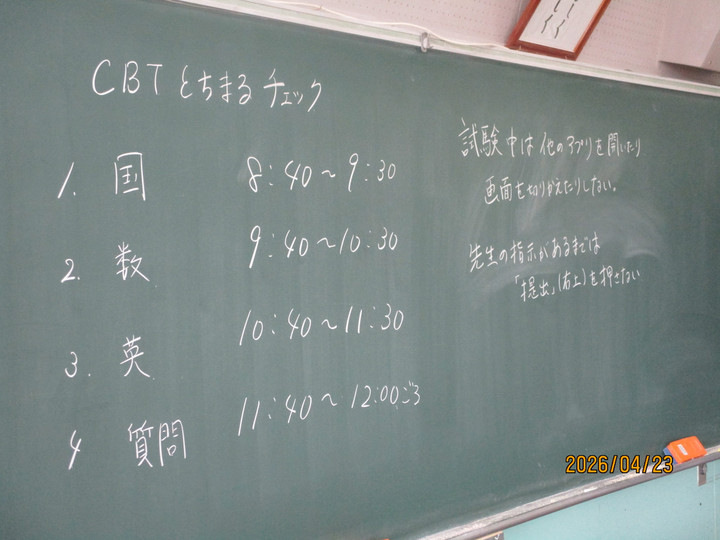 CBT とちまるチェック
1. 国 8:40～9:30
2. 数 9:40～10:30
3. 英 10:40～11:30
4 質問 11:40～12:00ごろ
試験中は他のアプリを開いたり
画面を切りかえたりしない。
先生の指示があるまでは
「提出」(右上)を押さない
2026/04/23